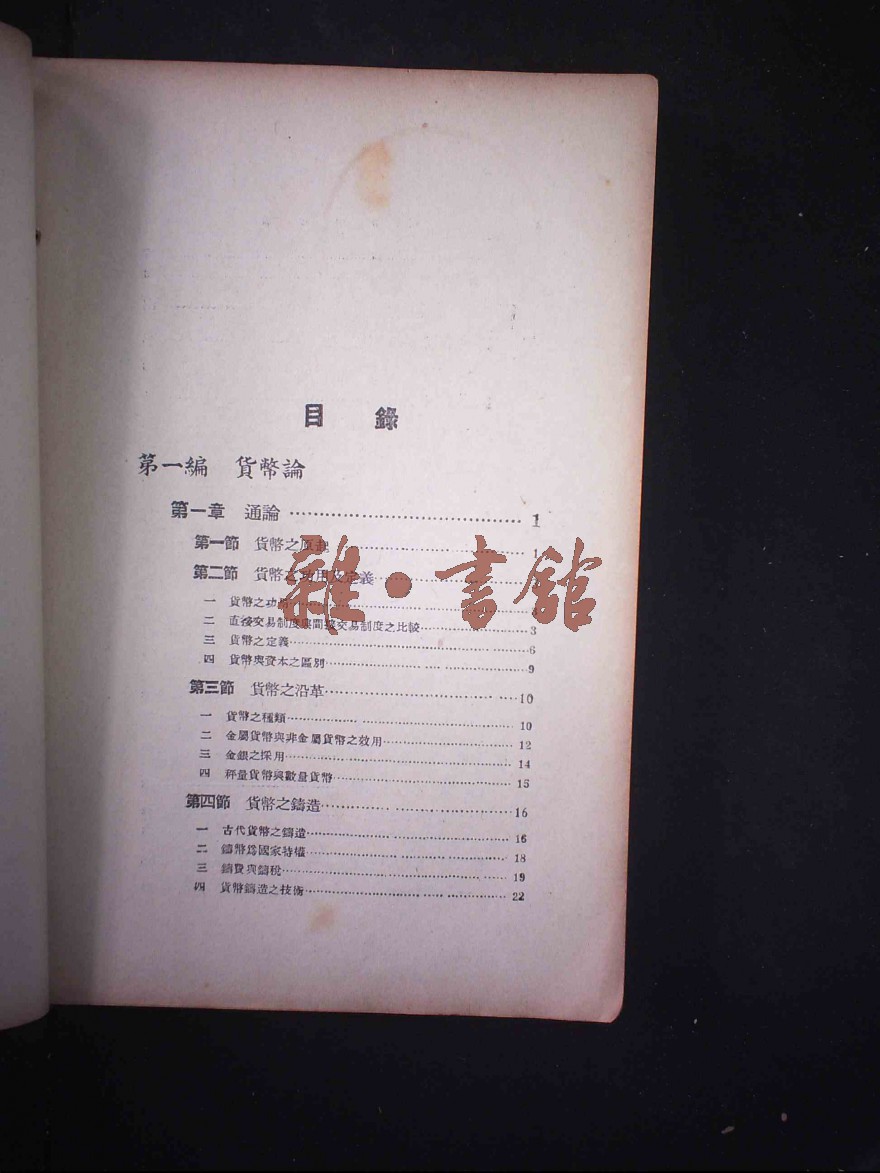 目錄
第一編 貨幣論
第一章 通論 1
第一節 貨幣之原起 1
第二節 貨幣之功用及定義
一 貨幣之功用
二 直接交易制度與間接交易制度之比較 3
三 貨幣之定義 6
四 貨幣與資本之區別 9
第三節 貨幣之沿革 10
一 貨幣之種類 10
二 金屬貨幣與非金屬貨幣之效用 12
三 金銀之採用 14
四 秤量貨幣與數量貨幣 15
第四節 貨幣之鑄造 16
一 古代貨幣之鑄造 16
二 鑄幣爲國家特權 18
三 鑄費與鑄稅 19
四 貨幣鑄造之技術 22
雜·書館